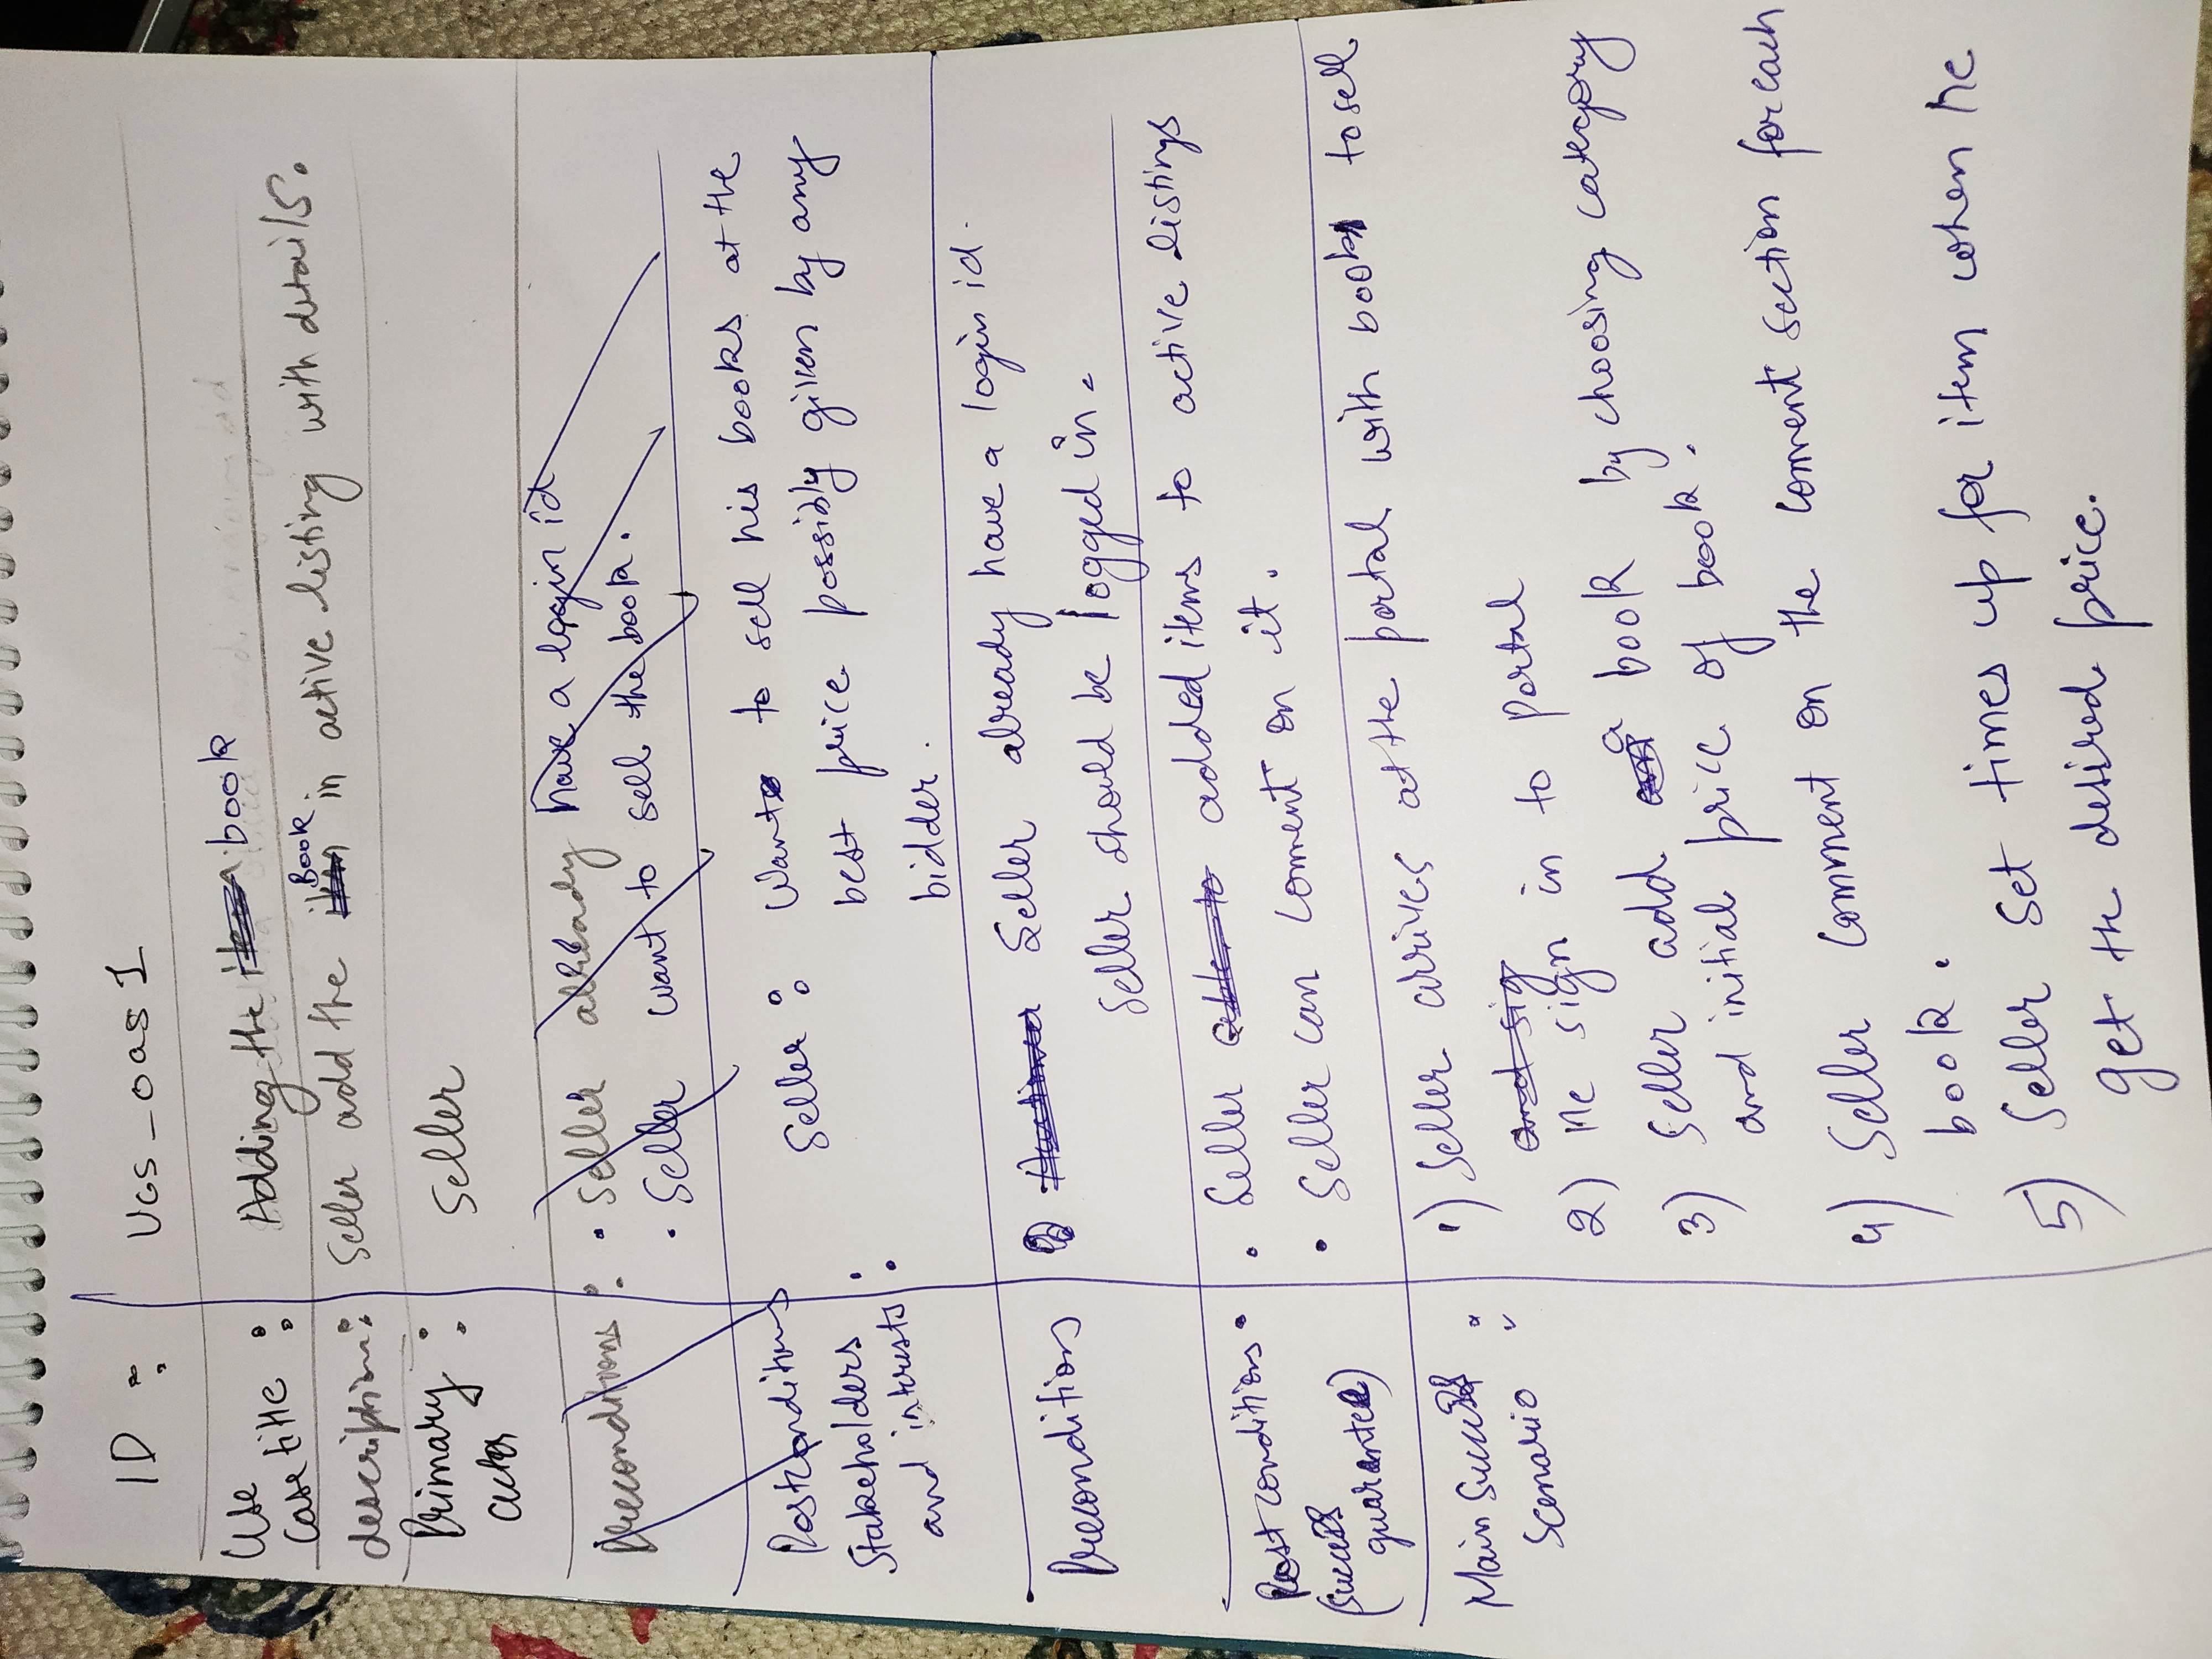 ID : UGS_oas1
Use
Case title : Adding the item book
Book
description : Seller add the item in active listing with details.
Primary : Seller
actor
Preconditions : • Seller already have a login id
• Seller want to sell the book.
Postconditions Seller : Wants to sell his books at the
Stakeholders : best price possibly given by any
and intrests bidder.
Preconditions Seller already have a login id.
Seller should be logged in.
Postconditions • Seller able to added items to active listings
(Success • Seller can comment on it.
guarantee)
Main Success : 1) Seller arrives at the portal with books to sell
Scenario and sig
2) He sign in to Portal
3) Seller add a book by choosing category
and initial price of book.
4) Seller comment on the comment section for each
book.
5) Seller set times up for item when he
get the desired price.